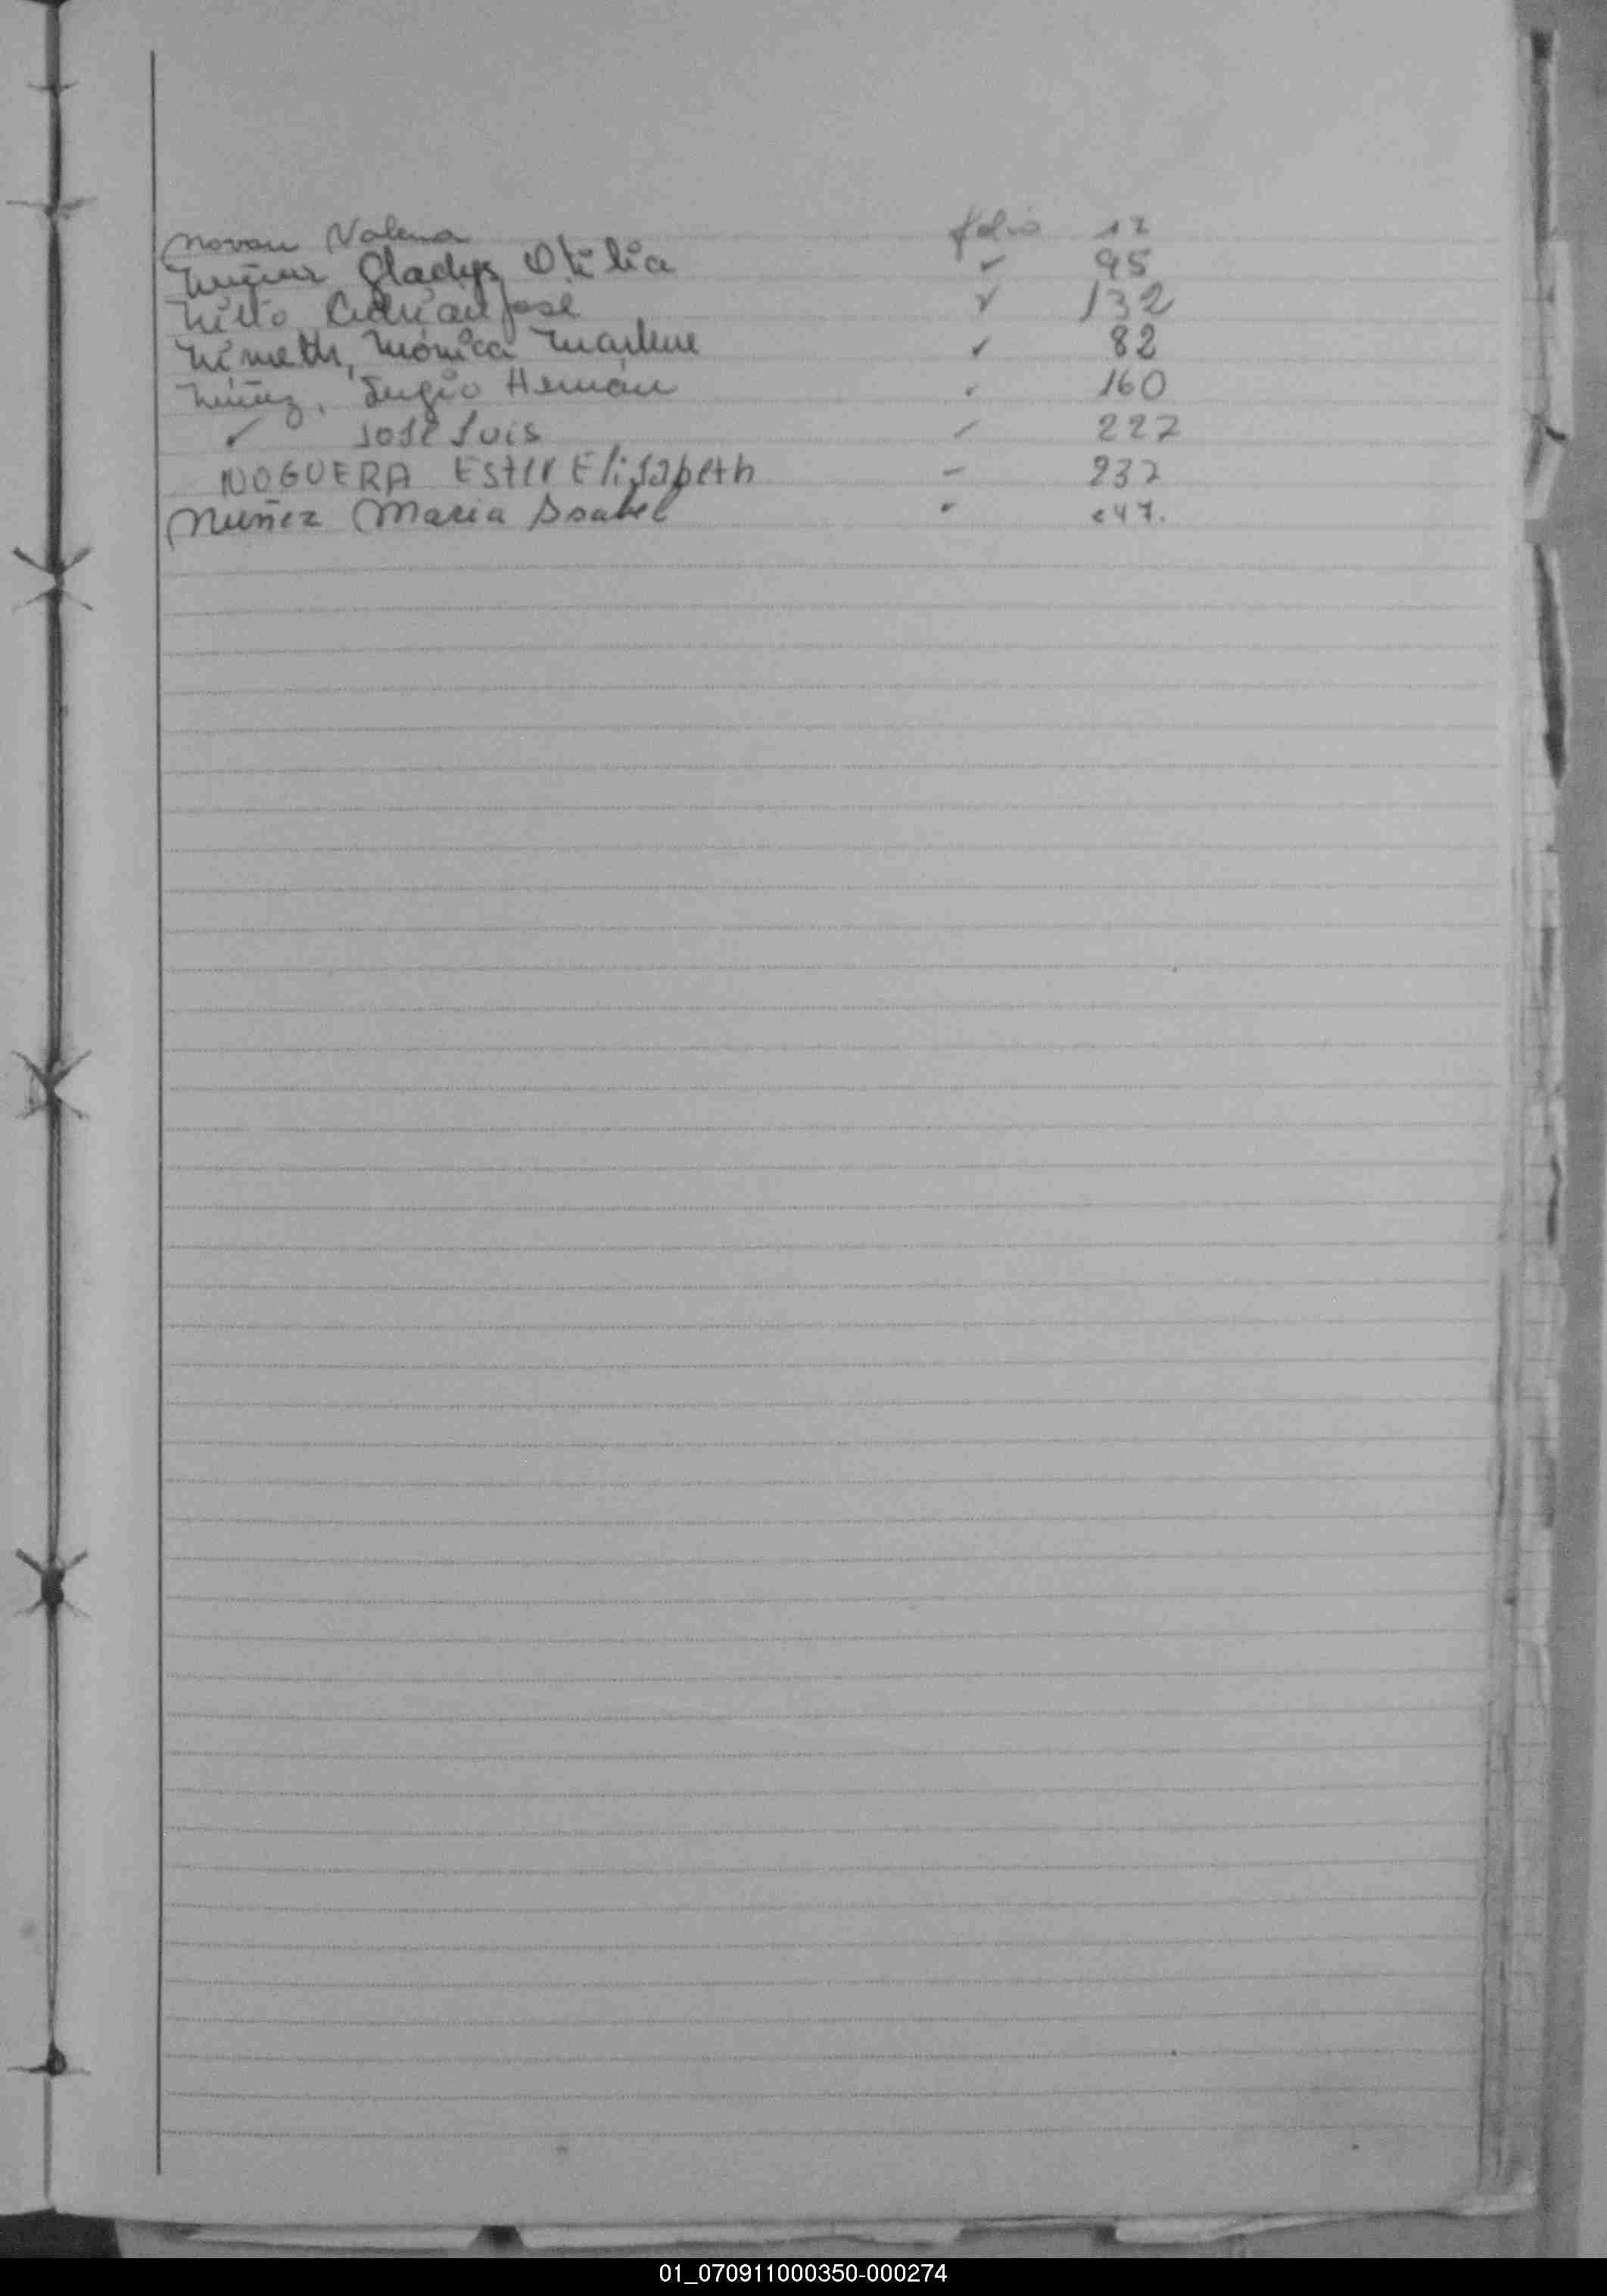 Novau Valena folio 17
Gladys Otilia ✓ 95
Nieto Adrian José ✓ 132
Nimeth, Mónica Marlene ✓ 82
Núñez, Sergio Hernán ✓ 160
✓ José Luis ✓ 227
NOGUERA EstEr Elisabeth - 237
Nuñez Maria Isabel " 247.
01_070911000350-000274